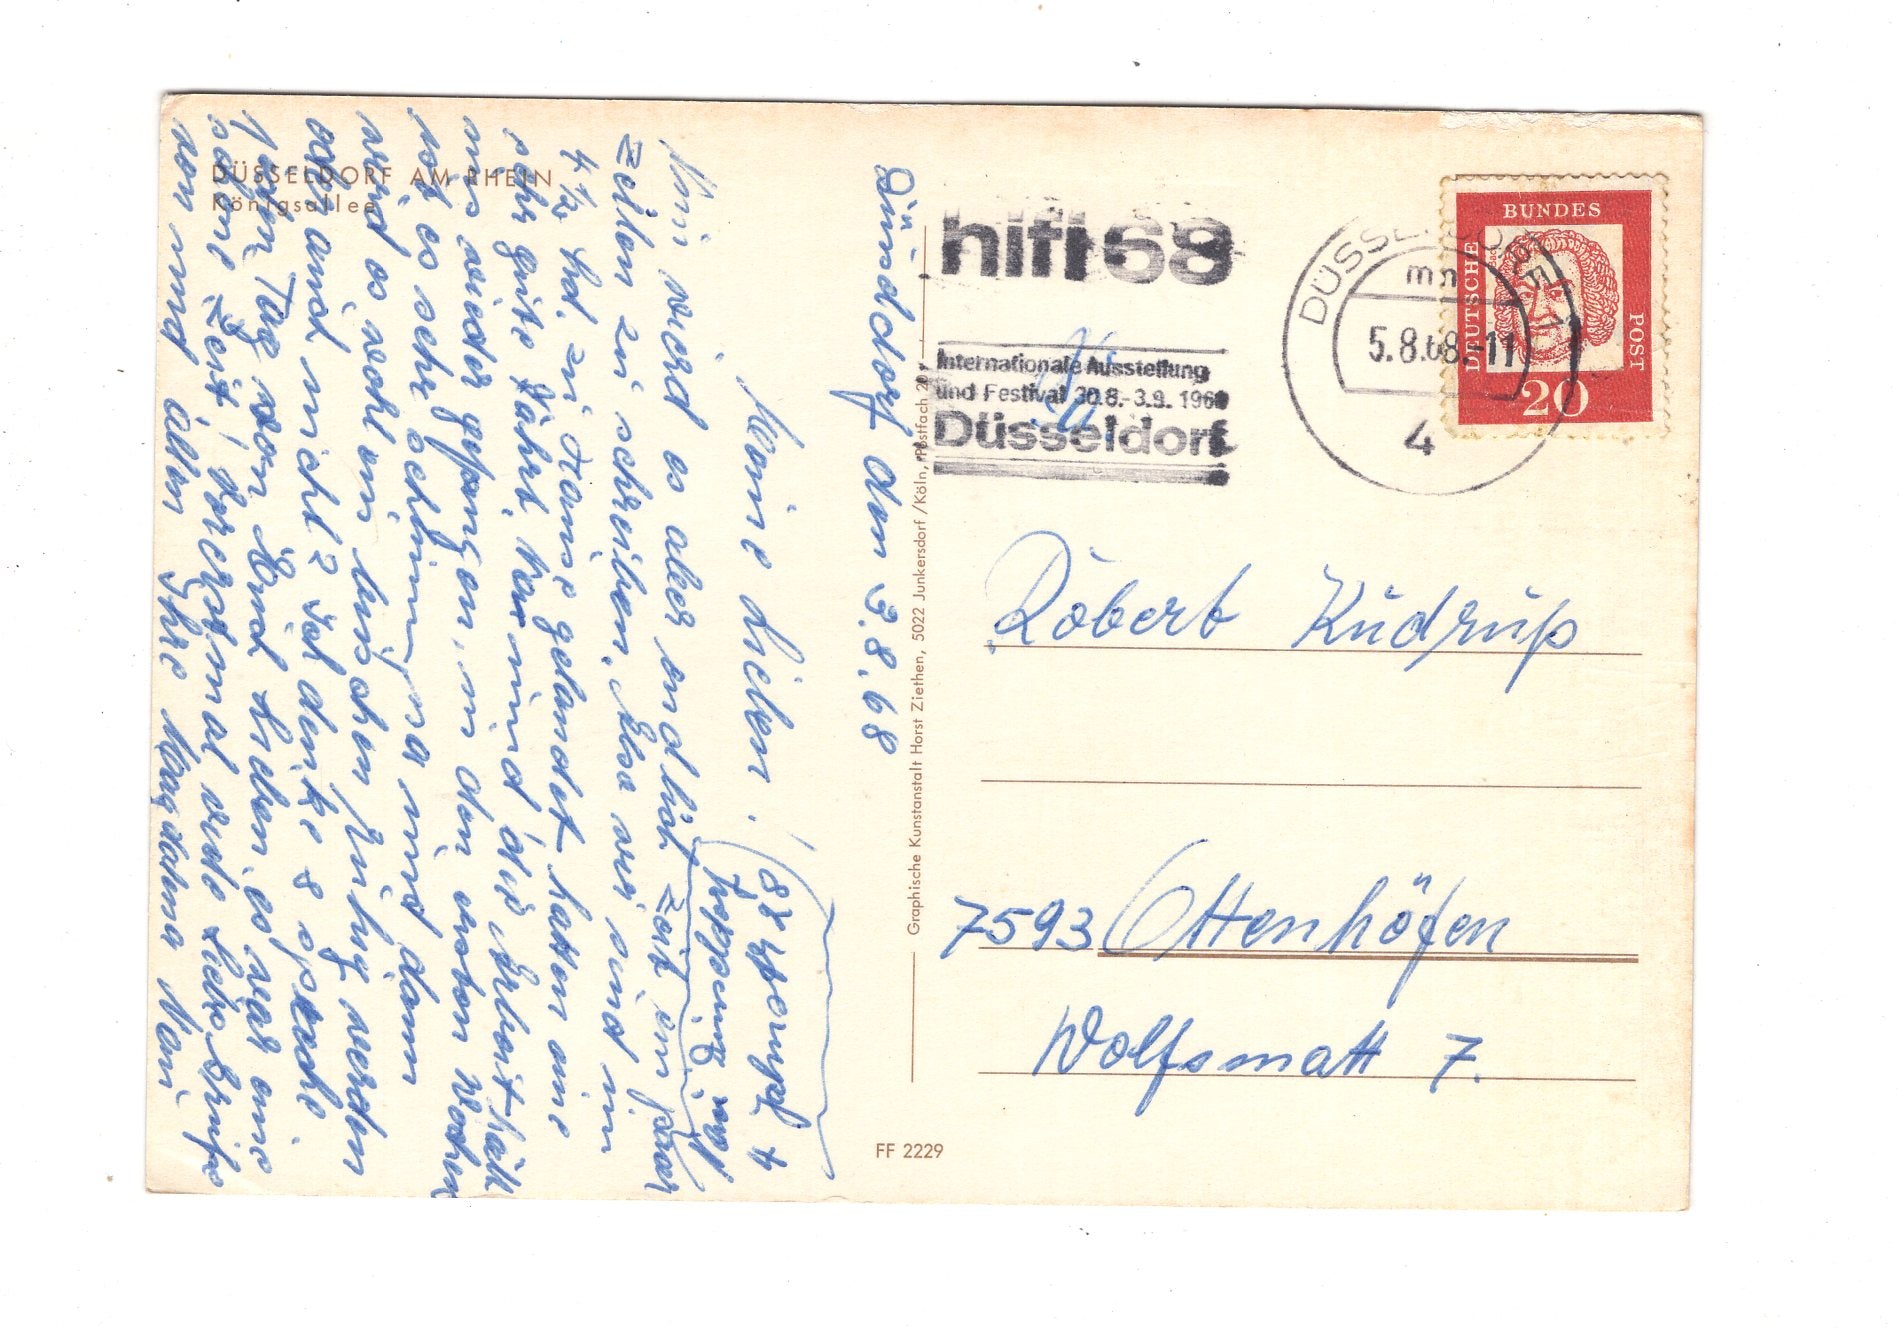 DÜSSELDORF AM RHEIN
Königsallee
Düsseldorf den 3.8.68
Meine Lieben!
Nun wird es aber endlich Zeit ein paar
Zeilen zu schreiben. Also wir sind um
4 1/2 hier zu Hause gelandet hatten eine
sehr gute Fahrt. Nun sind die Arbeit hält
uns wieder gefangen, in den ersten Wochen
ist es sehr schlimm, na und dann
wird es wohl ein bischen ruhig werden
oder auch nicht? Ich denke & spreche
jeden Tag von Euch Lieben, es war eine
schöne Zeit, vorerst mal viele liebe Grüße
von uns allen Ihre
Graphische Kunstanstalt Horst Ziethen, 5022 Junkersdorf/Köln, Postfach 20
FF 2229
hifi 68
Internationale Ausstellung
und Festival 30.8.-3.9. 1968
Düsseldorf
DÜSSELDORF 1
mn
5.8.68.-11
4
DEUTSCHE BUNDES POST
20
Robert Kudruß
7593 Ottenhöfen
Wolfsmatt 7.